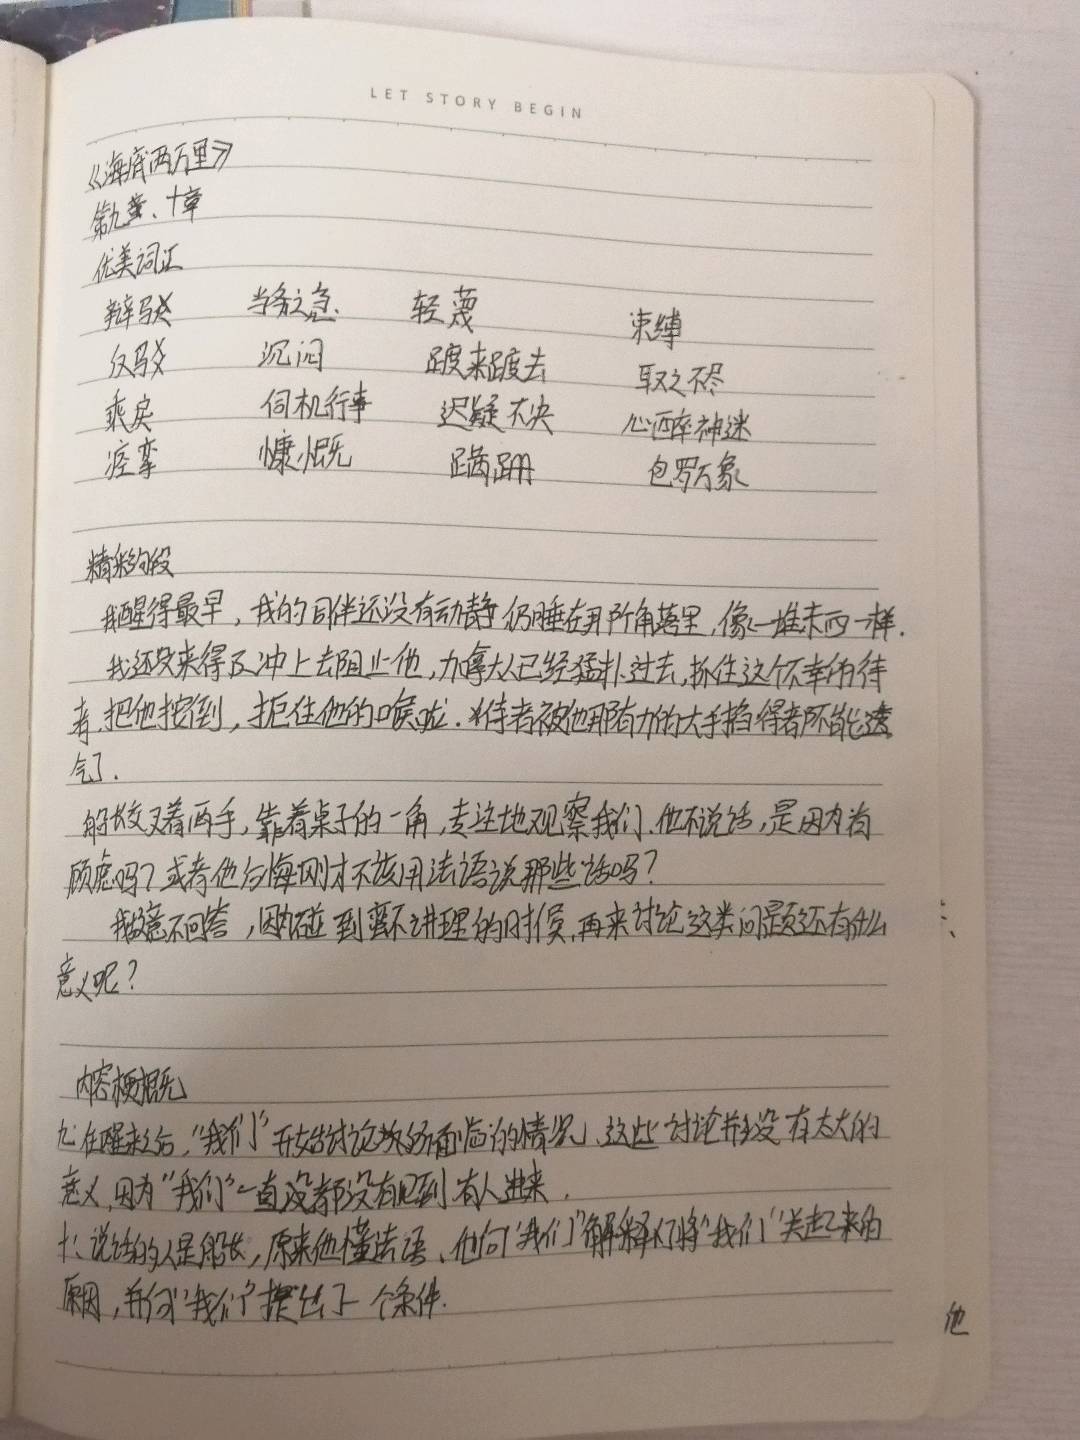 LET STORY BEGIN
《海底两万里》
第九章、十章
优美词汇
辩驳 当务之急. 轻蔑 束缚
反驳 沉闷 踱来踱去 取之不尽
乖戾 伺机行事 迟疑不决 心醉神迷
痉挛 慷慨 蹒跚 包罗万象
精彩的段
我醒得最早，我的同伴还没有动静仍睡在那个角落里，像一堆东西一样.
我还没来得及冲上去阻止他，加拿大人已经猛扑过去，抓住这个不幸的侍
者，把他按倒，扼住他的喉咙.侍者被他那有力的大手掐得都不能透
气了.
船长交叉着两手，靠着桌子的一角，专注地观察我们.他不说话，是因为有
顾虑吗？或者他后悔刚才不该用法语说那些话吗？
我故意不回答，因为碰到蛮不讲理的时候，再来讨论这类问题还有什么
意义呢？
内容梗概
九:在醒来之后，“我们”开始讨论现场面临的情况、这些讨论并没有太大的
意义，因为“我们”一直没都没有见到有人进来.
十:说话的人是船长，原来他懂法语、他向“我们”解释了将“我们”关起来的
原因，并向“我们”提出了一个条件.
他